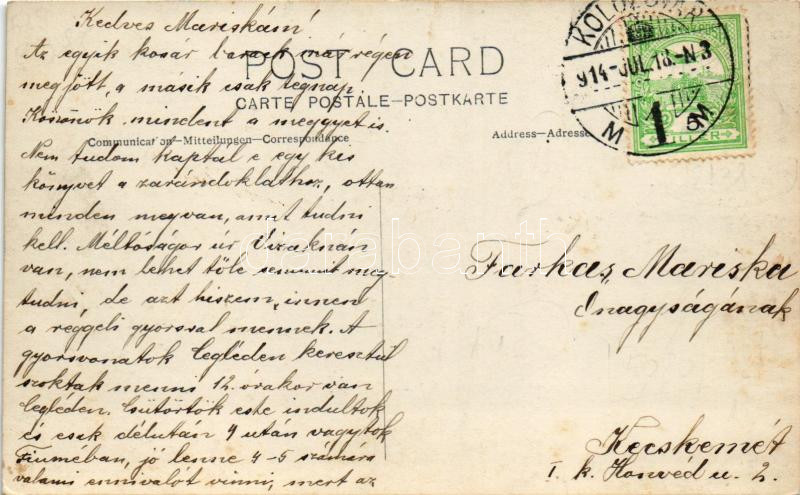 Kedves Mariskám!
Az egyik kosár barack már régen
megjött, a másik csak tegnap.
Köszönök mindent a meggyet is.
Nem tudom kaptál e egy kis
könyvet a zarándoklathoz, ottan
minden megvan, amit tudni
kell. Méltóságos úr Vizaknán
van, nem lehet tőle semmit meg-
tudni, de azt hiszem, innen
a reggeli gyorssal mennek. A
gyorsvonatok Cegléden keresztül
szoktak menni 12. órakor van
Cegléden. Csütörtök este indultok
és csak délután 4 után vagytok
Fiuméban, jó lenne 4-5 számára
valami ennivalót vinni, mert az
POST CARD
CARTE POSTALE—POSTKARTE
Communication—Mitteilungen—Correspondance
Address—Adresse
KOLOZSVÁR
914-JUL.18-N3
M M
1
5
FILLÉR
Farkas Mariska
Önagyságának
Kecskemét
I. k. Honvéd u. 2.
darabanth